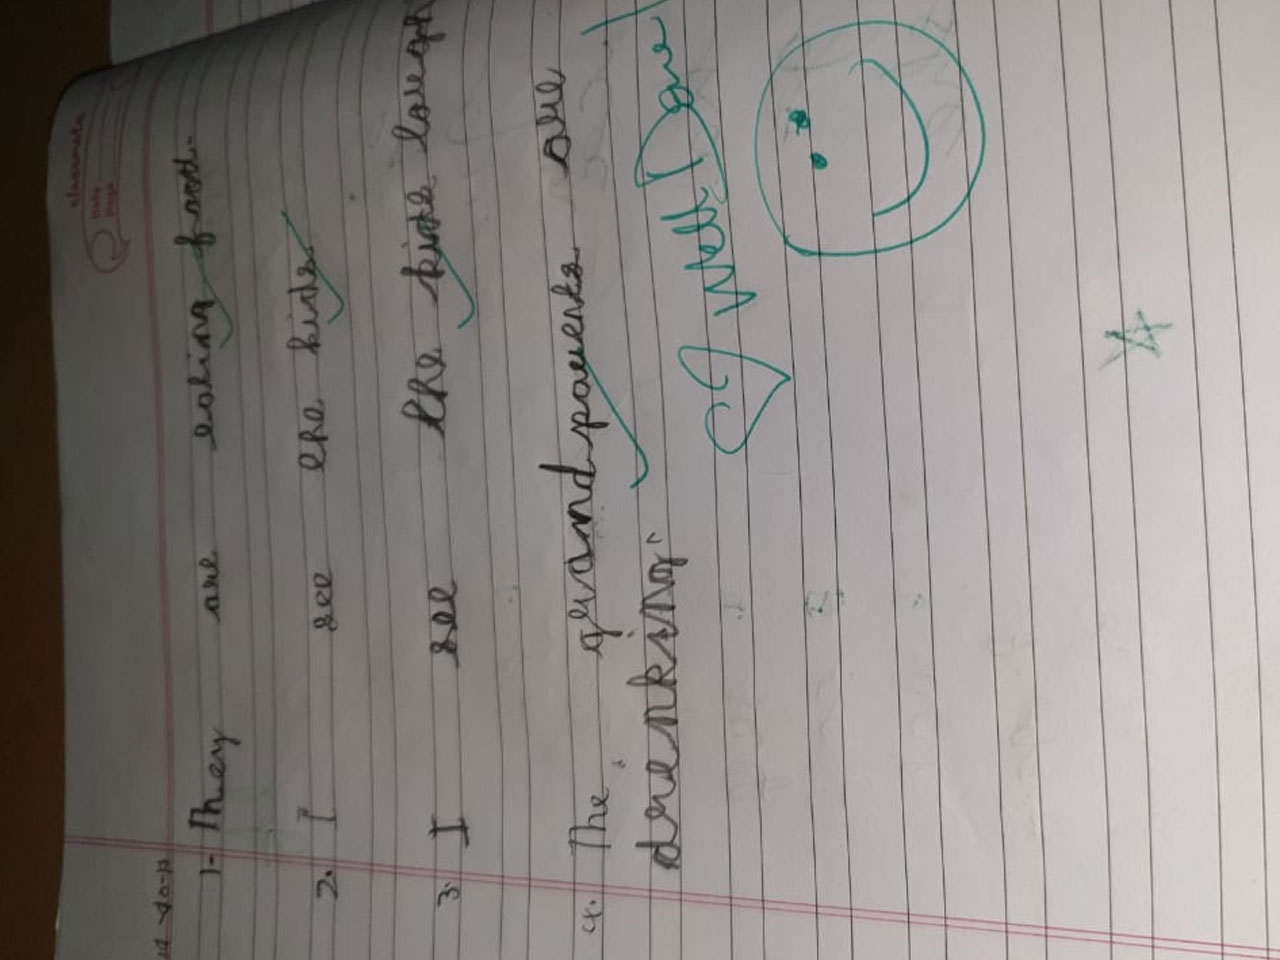 classmate
Date
Page
1- They are eating food.
2. I see the kids.
3. I see the kids laugh
4. The grandparents are
drenking.
Well Done!